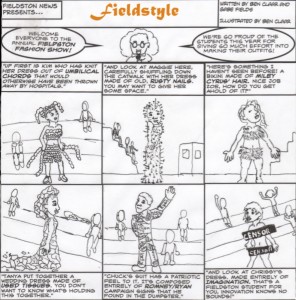 FIELDSTON NEWS
PRESENTS...
Fieldstyle
WRITTEN BY BEN CLAVIS AND
GABE FIELDS
ILLUSTRATED BY BEN CLAVIS
WELCOME
EVERYONE TO THE
ANNUAL FIELDSTON
FASHION SHOW!
WE'RE SO PROUD OF THE
STUDENTS THIS YEAR FOR
GIVING SO MUCH EFFORT INTO
MAKING THEIR OUTFITS!
"UP FIRST IS KIM WHO HAS KNIT
HER DRESS OUT OF UMBILICAL
CHORDS THAT WOULD
OTHERWISE HAVE BEEN THROWN
AWAY BY HOSPITALS."
"AND LOOK AT MAGGIE HERE,
CAREFULLY SHUFFLING DOWN
THE CATWALK WITH HER DRESS
MADE OF OLD RUSTY NAILS.
YOU MAY WANT TO GIVE HER
SOME SPACE."
"THERE'S SOMETHING I
HAVEN'T SEEN BEFORE! A
BIKINI MADE OF MILEY
CYRUS' HAIR. NICE JOB
ZOE, HOW DID YOU GET
AHOLD OF IT?"
CENSOR
"TANYA PUT TOGETHER A
WEDDING DRESS MADE OF
USED TISSUES. YOU DON'T
WANT TO KNOW WHAT'S HOLDING
THIS TOGETHER."
"CHUCK'S SUIT HAS A PATRIOTIC
FEEL TO IT. IT'S COMPOSED
ENTIRELY OF ROMNEY/RYAN
CAMPAIGN SIGNS THAT HE
FOUND IN THE DUMPSTER."
"AND LOOK AT CHRISSY'S
DRESS, MADE ENTIRELY OF
IMAGINATION. THAT'S A
FIELDSTON STUDENT FOR
YOU, INNOVATION KNOWS NO
BOUNDS!"